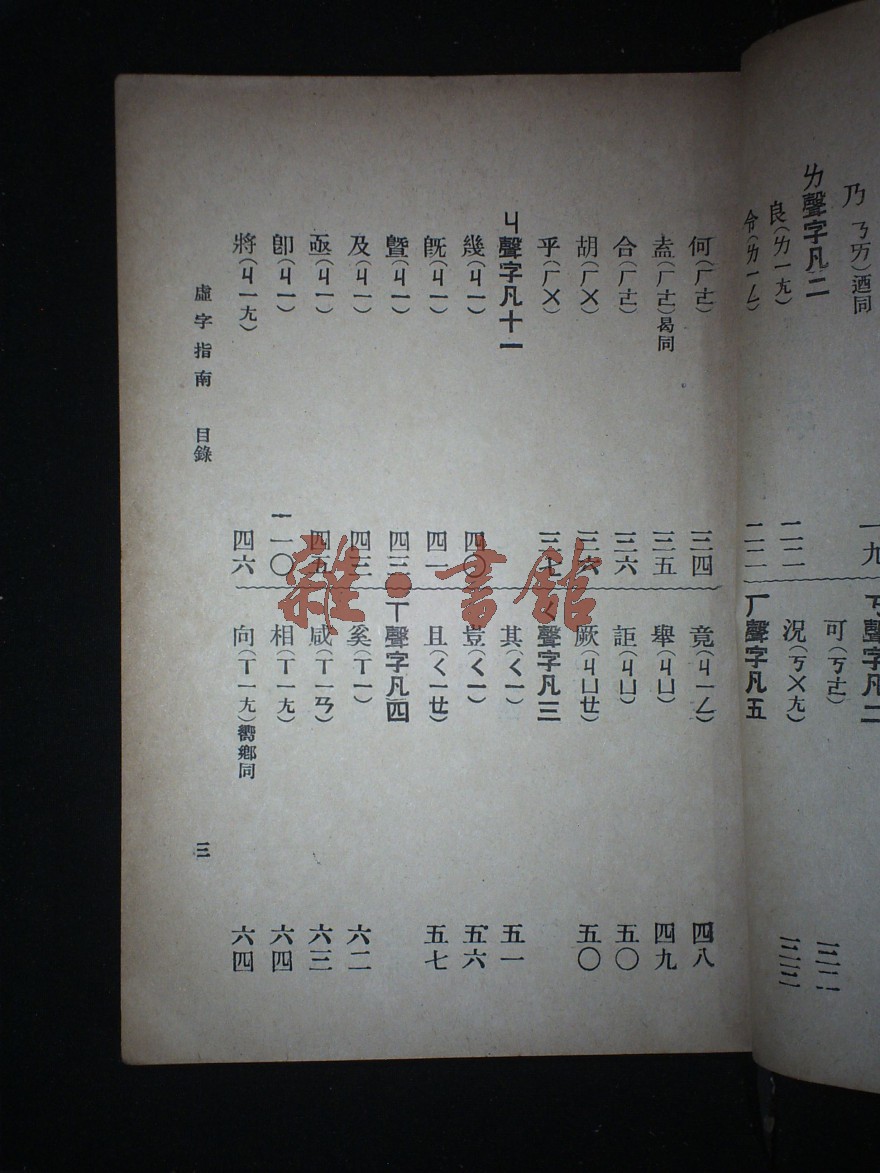 乃(ㄋㄞ)迺同 一九
ㄌ聲字凡二
良(ㄌㄧㄤ) 二二
令(ㄌㄧㄥ)
ㄎ聲字凡二
可(ㄎㄜ) 三二
況(ㄎㄨㄤ) 三三
ㄏ聲字凡五
何(ㄏㄜ) 三四
盍(ㄏㄜ)曷同 三五
合(ㄏㄜ) 三六
胡(ㄏㄨ) 三六
乎(ㄏㄨ) 三七
ㄐ聲字凡十一
幾(ㄐㄧ) 四〇
旣(ㄐㄧ) 四一
曁(ㄐㄧ) 四三
及(ㄐㄧ) 四三
亟(ㄐㄧ) 四五
卽(ㄐㄧ) 一一〇
將(ㄐㄧㄤ) 四六
竟(ㄐㄧㄥ) 四八
舉(ㄐㄩ) 四九
詎(ㄐㄩ) 五〇
厥(ㄐㄩㄝ) 五〇
ㄑ聲字凡三
其(ㄑㄧ) 五一
豈(ㄑㄧ) 五六
且(ㄑㄧㄝ) 五七
ㄒ聲字凡四
奚(ㄒㄧ) 六二
咸(ㄒㄧㄢ) 六三
相(ㄒㄧㄤ) 六四
向(ㄒㄧㄤ)嚮鄉同 六四
虛字指南 目錄 三
雜·書館